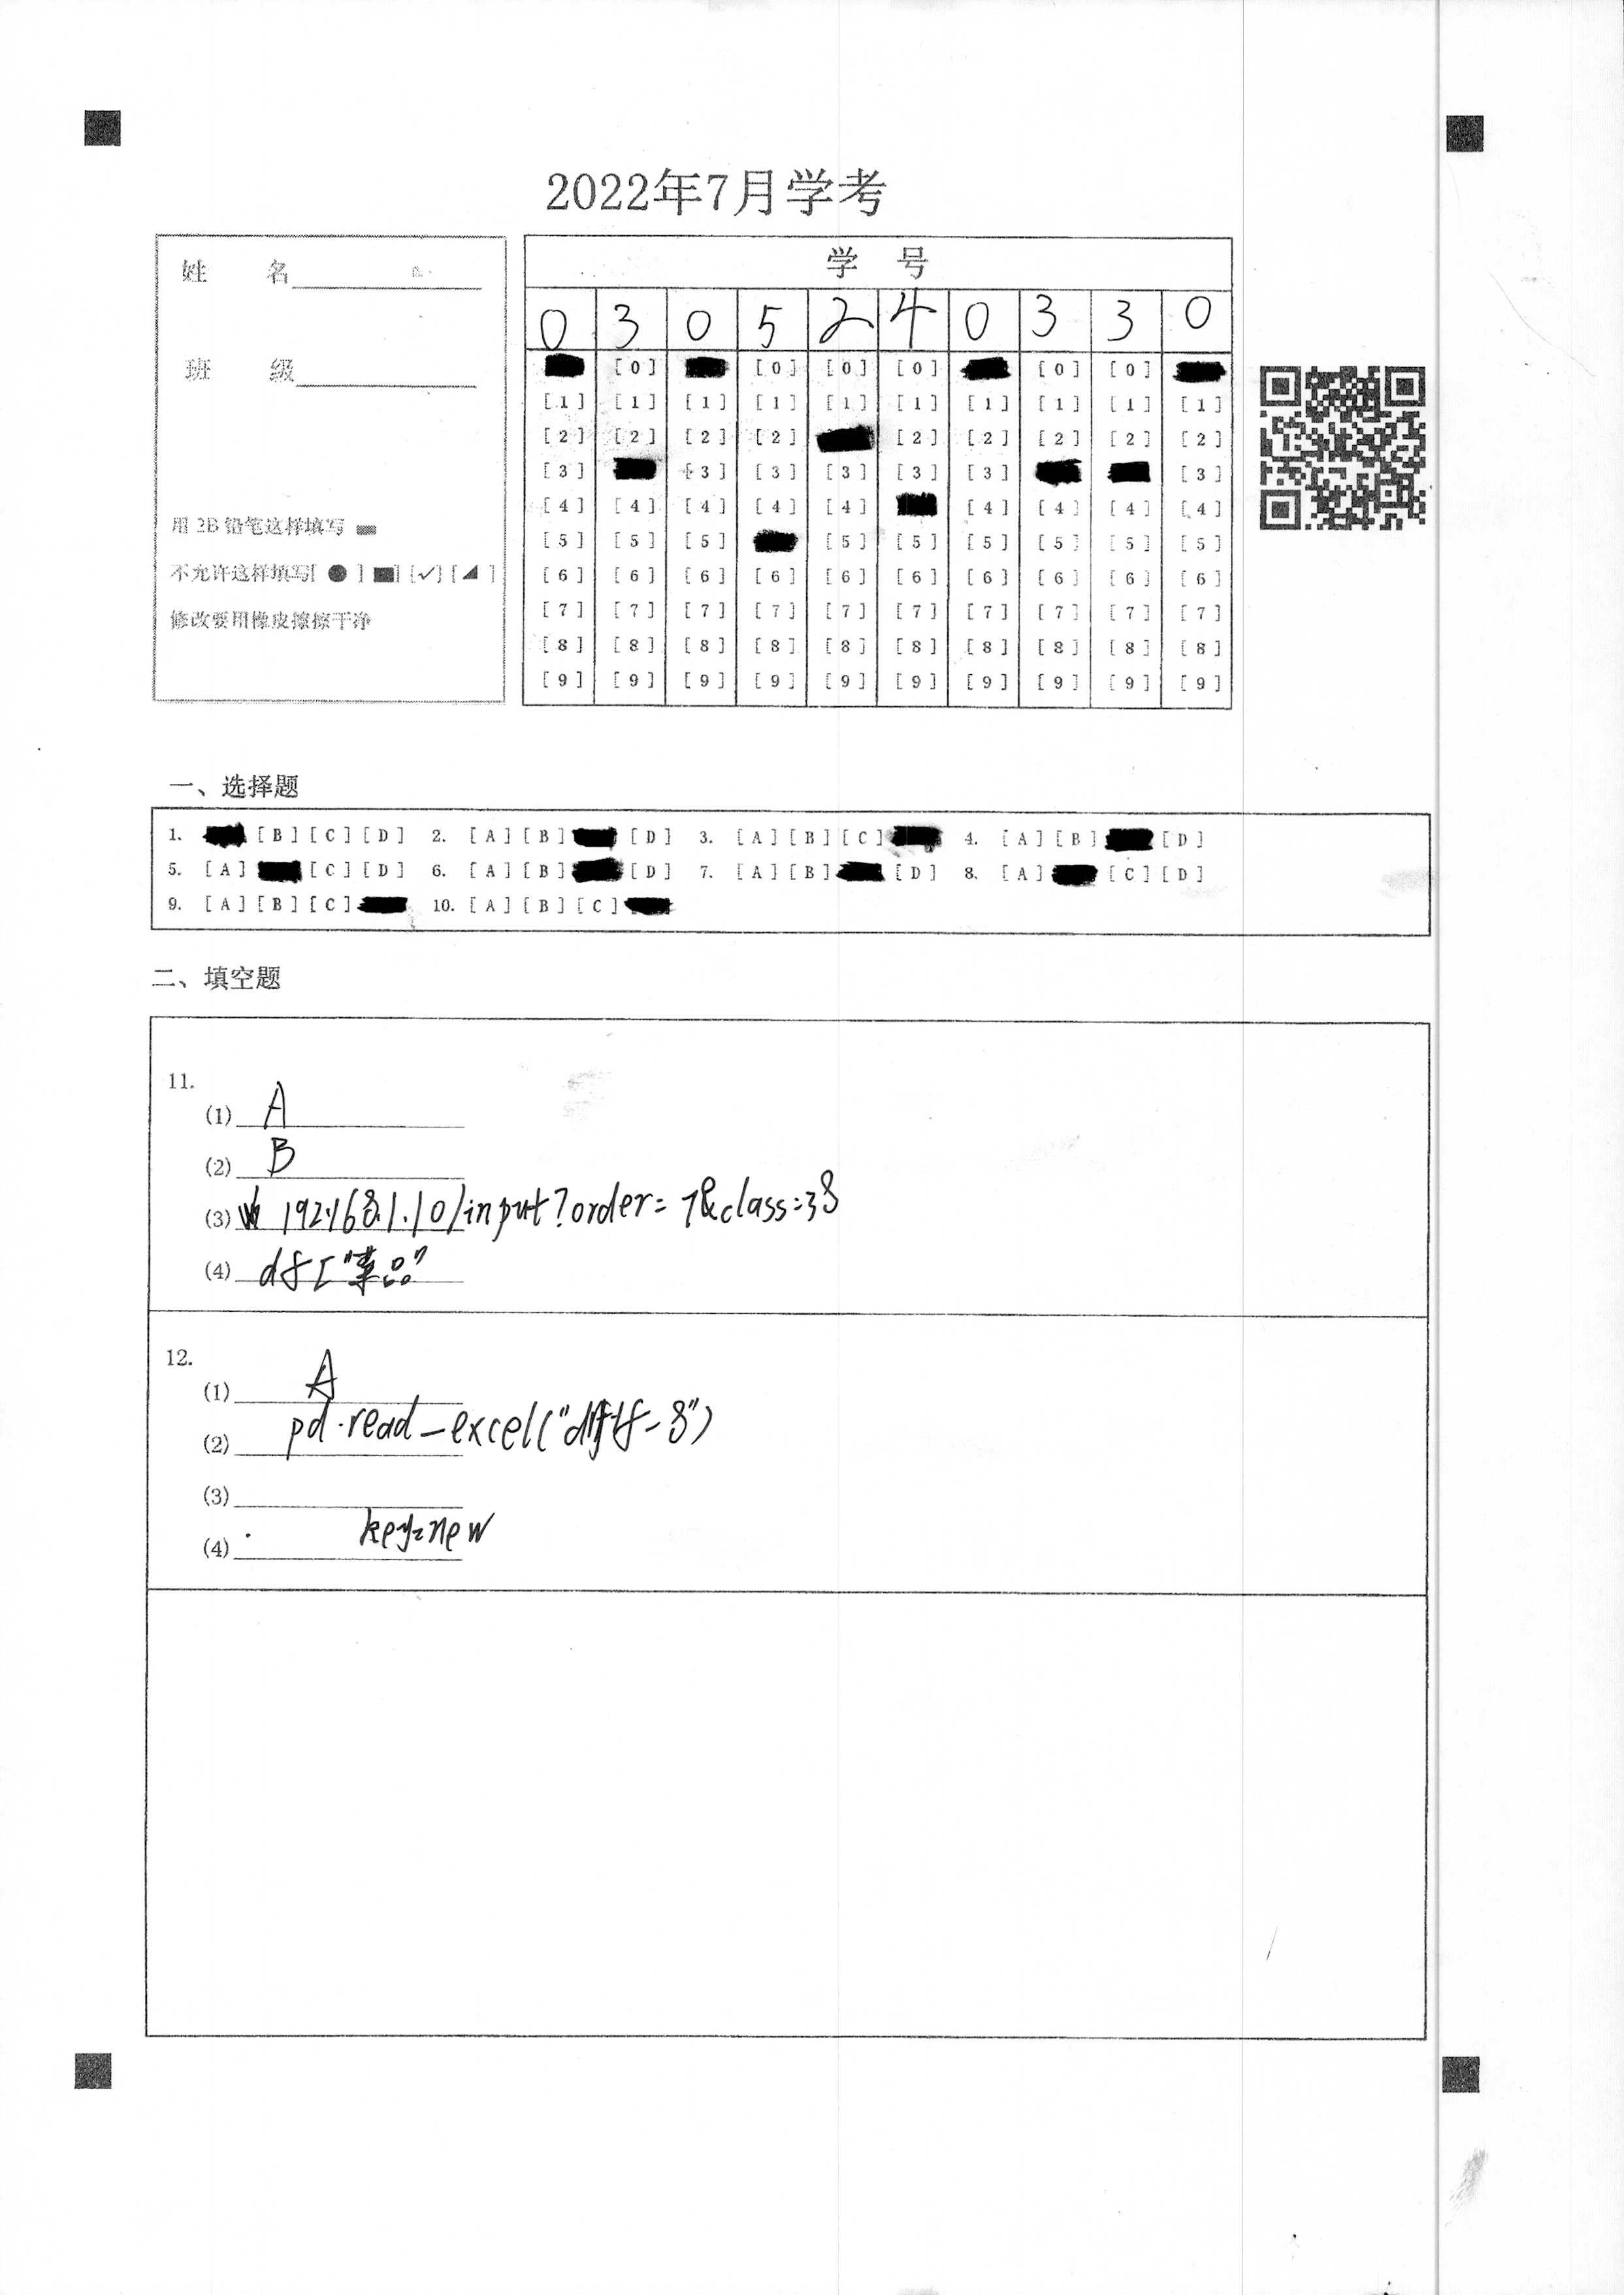 2022年7月学考
姓 名
班 级
用 2B 铅笔这样填写
不允许这样填写[ ● ] ■] [✓] [◢ ]
修改要用橡皮擦擦干净
学 号
0 3 0 5 2 4 0 3 3 0
[0] [0] [0] [0] [0]
[1] [1] [1] [1] [1] [1] [1] [1] [1] [1]
[2] [2] [2] [2] [2] [2] [2] [2] [2]
[3] [3] [3] [3] [3] [3] [3]
[4] [4] [4] [4] [4] [4] [4] [4] [4]
[5] [5] [5] [5] [5] [5] [5] [5] [5]
[6] [6] [6] [6] [6] [6] [6] [6] [6] [6]
[7] [7] [7] [7] [7] [7] [7] [7] [7] [7]
[8] [8] [8] [8] [8] [8] [8] [8] [8] [8]
[9] [9] [9] [9] [9] [9] [9] [9] [9] [9]
一、选择题
1. [B] [C] [D] 2. [A] [B] [D] 3. [A] [B] [C] 4. [A] [B] [D]
5. [A] [C] [D] 6. [A] [B] [D] 7. [A] [B] [D] 8. [A] [C] [D]
9. [A] [B] [C] 10. [A] [B] [C]
二、填空题
11.
(1) A
(2) B
(3) 192.168.1.10/input?order=7&class=38
(4) df["菜品"
12.
(1) A
(2) pd.read_excel("
(3)
(4) key=new